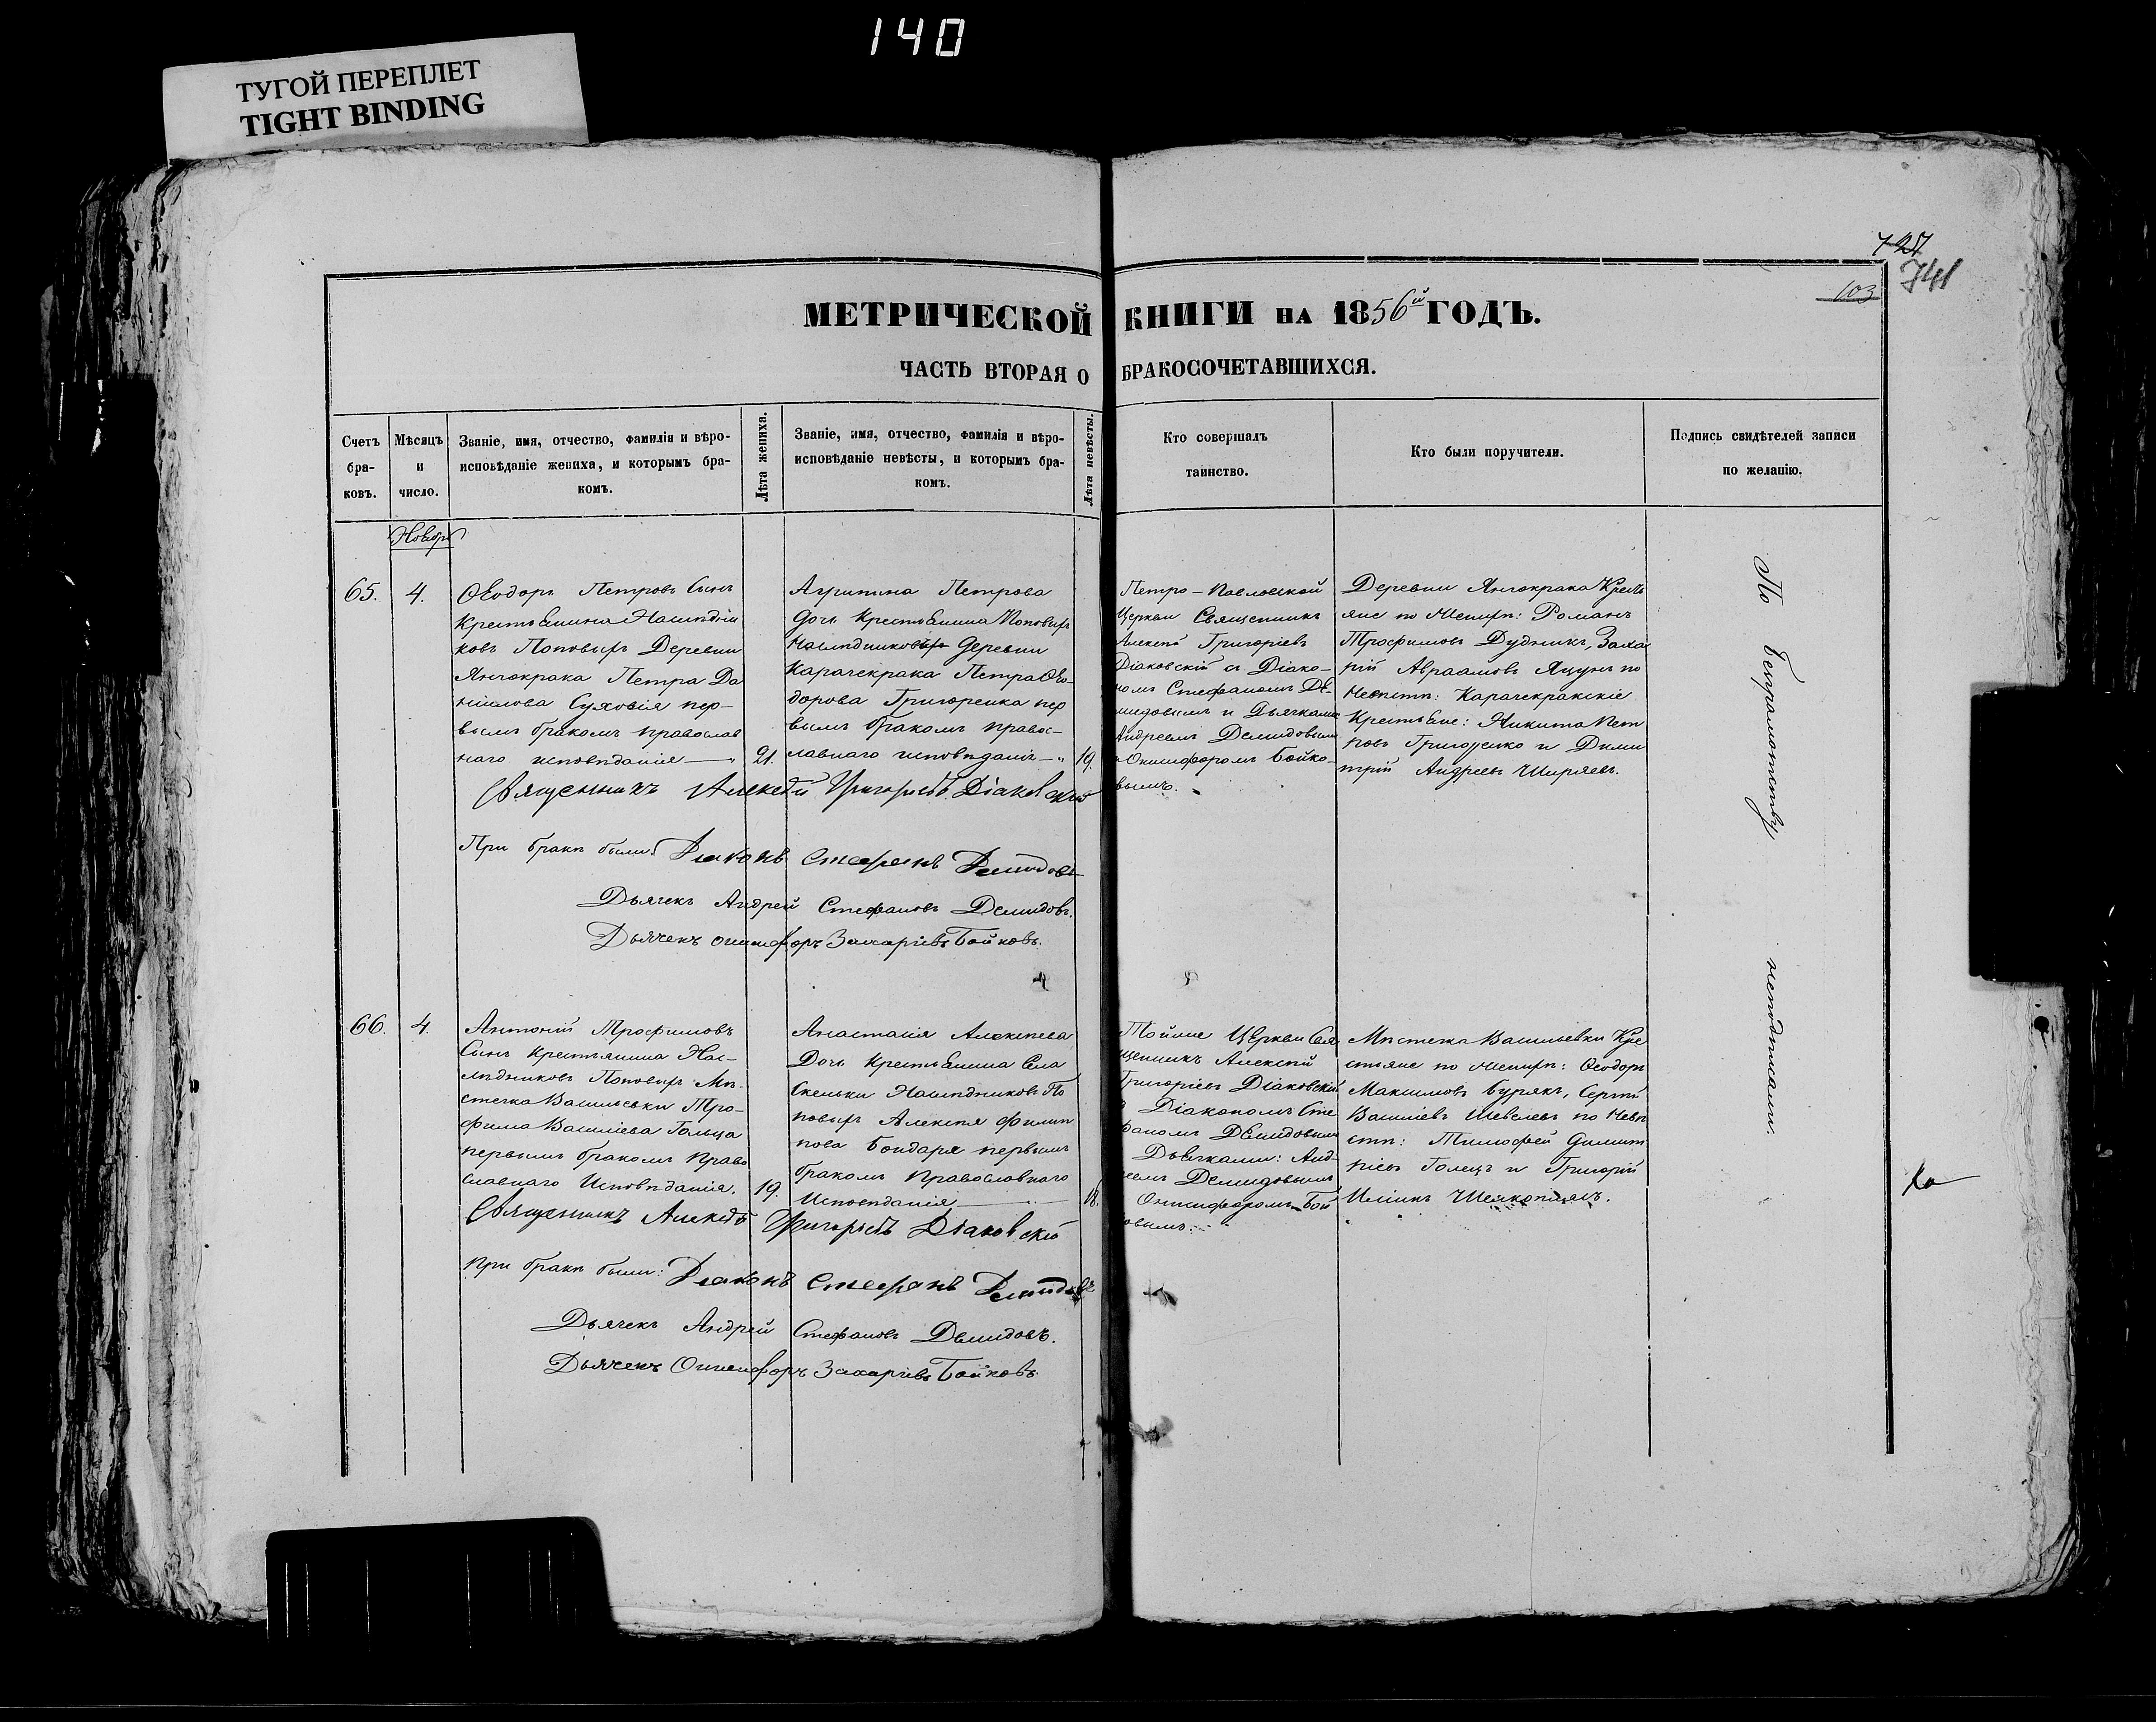 140
ТУГОЙ ПЕРЕПЛЕТ
TIGHT BINDING
741
103
МЕТРИЧЕСКОЙ КНИГИ НА 1856й ГОДЪ.
ЧАСТЬ ВТОРАЯ О БРАКОСОЧЕТАВШИХСЯ.
Счетъ бра-ковъ.
Мѣсяцъ и число.
Званіе, имя, отчество, фамилія и вѣро-
исповѣданіе жениха, и которымъ бра-
комъ.
Лѣта жениха.
Званіе, имя, отчество, фамилія и вѣро-
исповѣданіе невѣсты, и которымъ бра-
комъ.
Лѣта невѣсты.
Кто совершалъ
таинство.
Кто были поручители.
Подпись свидѣтелей записи
по желанію.
Ноябрь
65.
4.
Ѳеодоръ Петровъ Сынъ
Крестьянина Наслѣдни
ковъ Поповыхъ Деревни
Янчокрака Петра Да
ніилова Суховія пер-
вымъ бракомъ православ
наго исповѣданія
21.
Агрипина Петрова
Дочь Крестьянина Поповыхъ
Наслѣдниковъ Деревни
Карачекрака Петра Ѳео-
дорова Григоренка пер
вымъ бракомъ правос-
лавнаго исповѣданія
19.
Петро-Павловской
Церкви Священникъ
Алексѣй Григоріевъ
Діаковскій съ Діако-
номъ Стефаномъ Де-
мидовымъ и Дьячками
Андреемъ Демидовымъ
Онисифоромъ Бойко-
вымъ.
Деревни Янчокрака Кресть
яне по Женихѣ: Романъ
Трофимовъ Дудникъ, Заха
рій Авраамовъ Яцунъ по
Невѣстѣ: Карачекракскіе
Крестьяне: Никита Пет
ровъ Григоренко и Дими
трій Андреевъ Ширяевъ.
По безграмотству неподписали.
Священникъ Алексѣй Григоріевъ Діаковскій
При бракѣ были: Діаконъ Стефанъ Демидовъ
Дьячекъ Андрей Стефановъ Демидовъ.
Дьячекъ Онисифоръ Захаріевъ Бойковъ.
66.
4.
Антоній Трофимовъ
Сынъ Крестьянина Нас-
лѣдниковъ Поповыхъ Мѣ-
стечка Васильевки Тро-
фима Василіева Гольца
первымъ бракомъ Право
славнаго Исповѣданія.
19.
Анастасія Алексѣева
Дочь Крестьянина Села
Скельки Наслѣдниковъ По
повыхъ Алексѣя Филип
пова Бондаря первымъ
бракомъ Православнаго
Исповѣданія
18.
Тойже Церкви Свя
щенникъ Алексѣй
Григоріевъ Діаковскій
Діакономъ Сте
фаномъ Демидовымъ
Дьячками: Анд-
реемъ Демидовымъ
Онисифоромъ Бой
ковымъ.
Мѣстечка Васильевки Кре
стьяне по Женихѣ: Ѳеодоръ
Максимовъ Бурякъ, Сергѣй
Василіевъ Шевелевъ по Невѣ
стѣ: Тимофей Димит
ріевъ Голецъ и Григорій
Священникъ Алексѣй Григоріевъ Діаковскій
При бракѣ были: Діаконъ Стефанъ Демидовъ
Дьячекъ Андрей Стефановъ Демидовъ.
Дьячекъ Онисифоръ Захаріевъ Бойковъ.